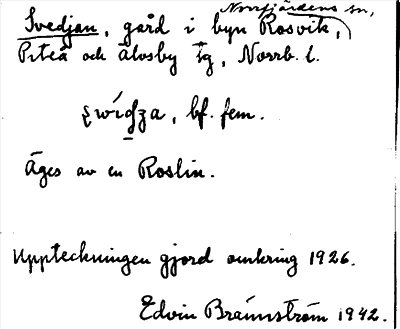 Norrfjärdens sn,
Svedjan, gård i byn Rosvik,
Piteå och Älvsby tg, Norrb. l.
bf. fem.
Äges av en Roslin.
Uppteckningen gjord omkring 1926.
Edvin Brännström 1942.